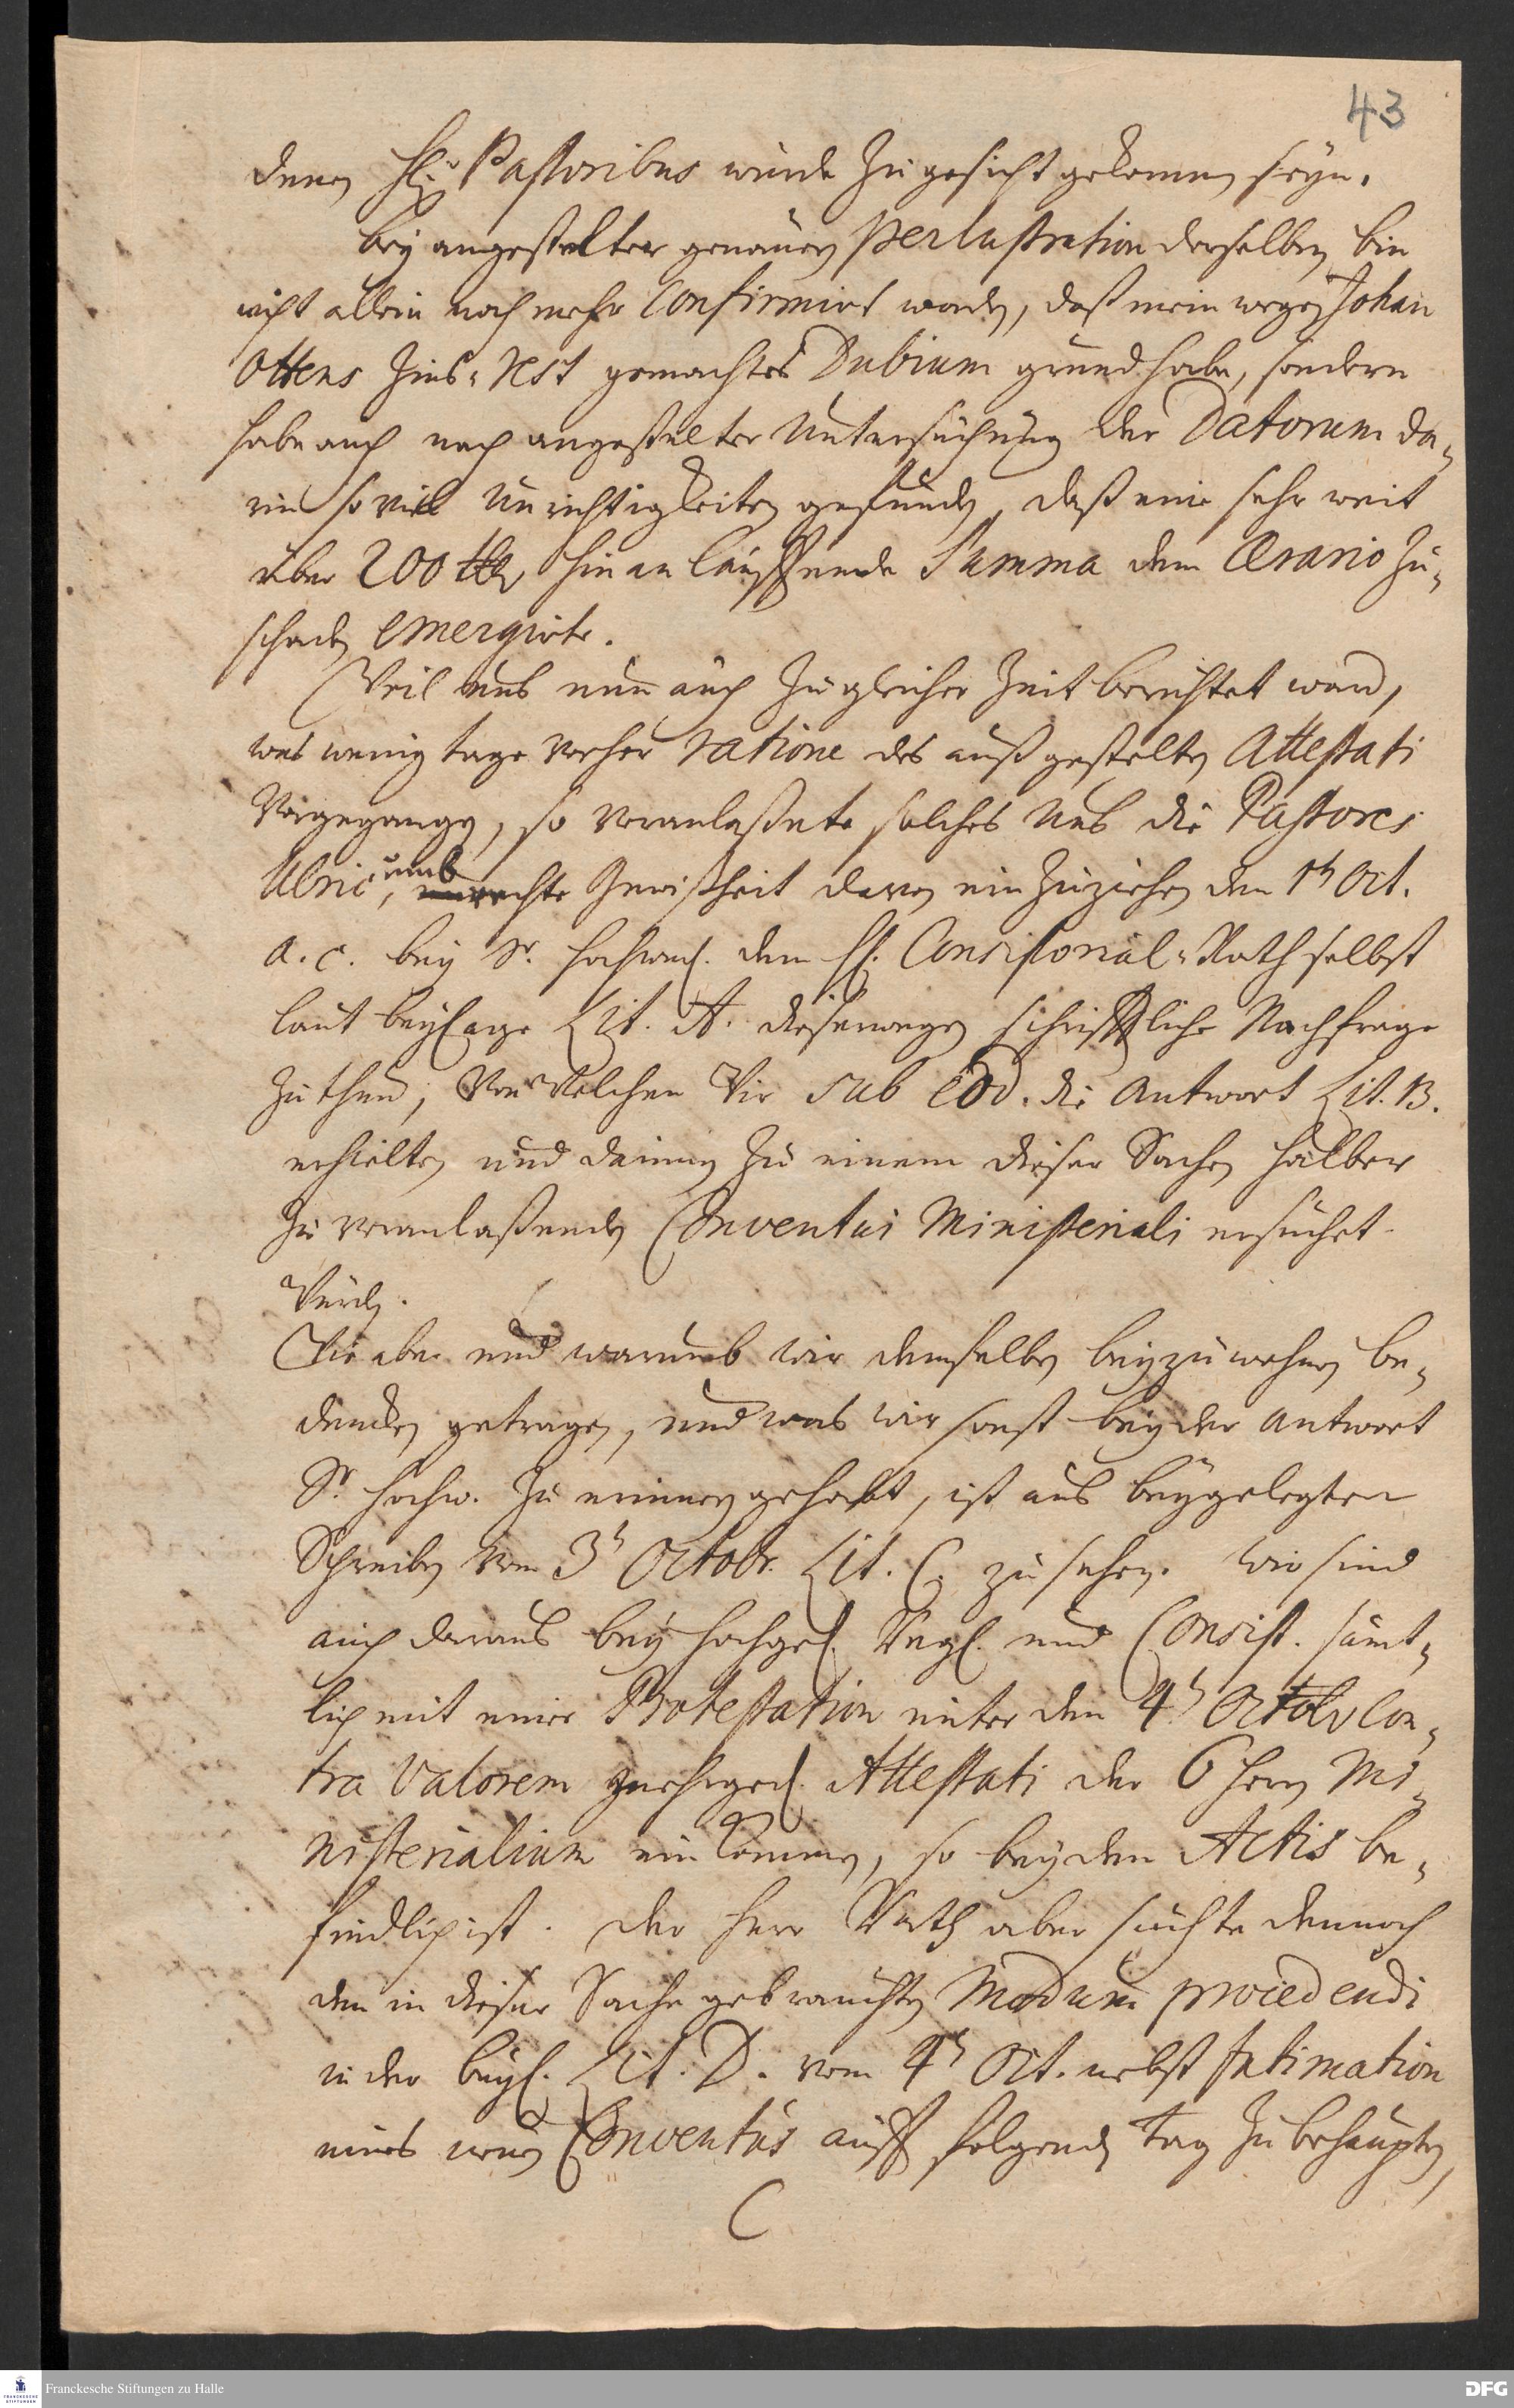 43
denen HE. Pastoribus würde zu gesicht gekommen seyn.
bey angestelter genauen perlustration derselben bin
nicht allein noch mehr Confirmirt worden, daß mein wegen Johan
Ottens Zinß-rest gemachtes Dubium grund habe, sondern
habe auch nach angestelter Untersuchung der Datorum da-
rin so viel Unrichtigkeiten gefunden, daß eine sehr weit
über 200 thlr hinan lauffende Summa dem Ærario zu
schaden emergirte.
Weil uns nun auch zu gleicher Zeit berichtet ward,
was wenig tage vorher ratione des auß gestelten Attestati
Vorgegangen, so veranlaßete solches Uns die Pastores
Ulric, umb rechte Gewißheit davon ein zu ziehen den 1t Oct.
a. c. bey Sr. Hochwed. dem H. Consistorial-Rath selbst
laut beylage Lit. A. dieserwegen schrifftliche Nachfrage
zu thun; Von Welchen Wir sub eod. die Antwort Lit. B.
erhielten und darinnen zu einem dieser Sachen halber
zu veranlaßenden Conventui Ministeriali ersuchet
Würden.
Wie aber und warumb wir demselben beyzuwohnen be-
dencken getragen, und was wir sonst bey der Antwort
Sr. Hochw. zu erinnern gehabt, ist aus beygelegten
Schreiben vom 3t Octobr. Lit. C. zu sehen. Wir sind
auch daraus bey Hochgel. Regl. und Consist. sämt-
lich mit einer Protestation unter den 4t Octobr Con-
tra Valorem Attestati der 6 Herrn Mi-
nisterialium ein kommen, so bey den Actis be-
findlich ist. der Herr Rath aber suchte dennoch
den in dieser Sache gebrauchten Modum procedendi
in der beyl. Lit. D. vom 4t Oct. nebst Intimation
eines neuen Conventus auff folgenden Tag zu behaupten,
C
Franckesche Stiftungen zu Halle
DFG